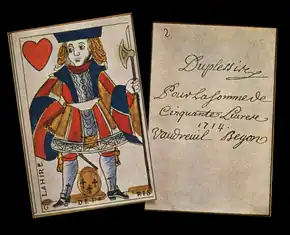 LAHIRE
Duplessis
Pour La Somme de
Cinquante Livres
1714.
Vaudreuil Begon